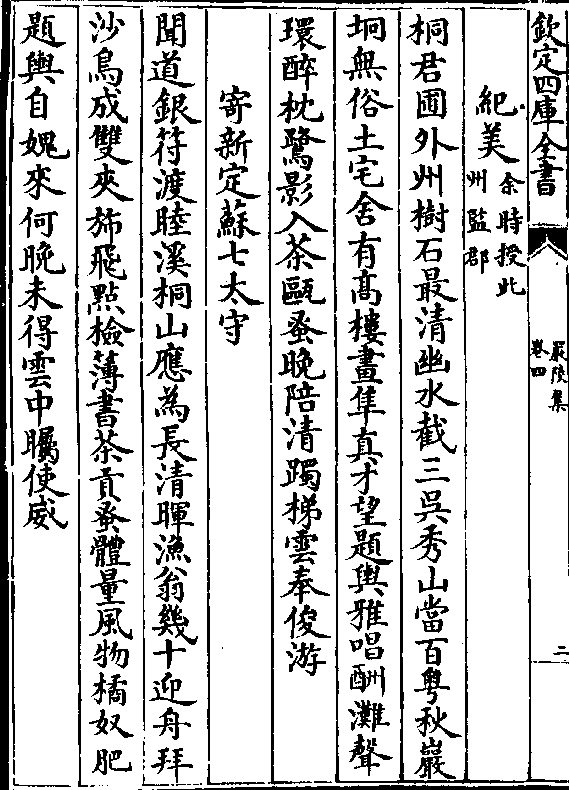 欽定四庫全書
嚴陵集
卷四
二
紀美余時授此州監郡
桐君圃外州樹石最清幽水截三吳秀山當百粵秋巖
坰無俗土宅舍有高樓畫隼真才望題輿雅唱酬灘聲
環醉枕鷺影入茶甌蚤晚陪清躅梯雲奉俊游
寄新定蘇七太守
聞道銀符渡睦溪桐山應為長清暉漁翁幾十迎舟拜
沙鳥成雙夾斾飛點檢薄書茶貢蚤體量風物橘奴肥
題輿自媿來何晚未得雲中矚使威